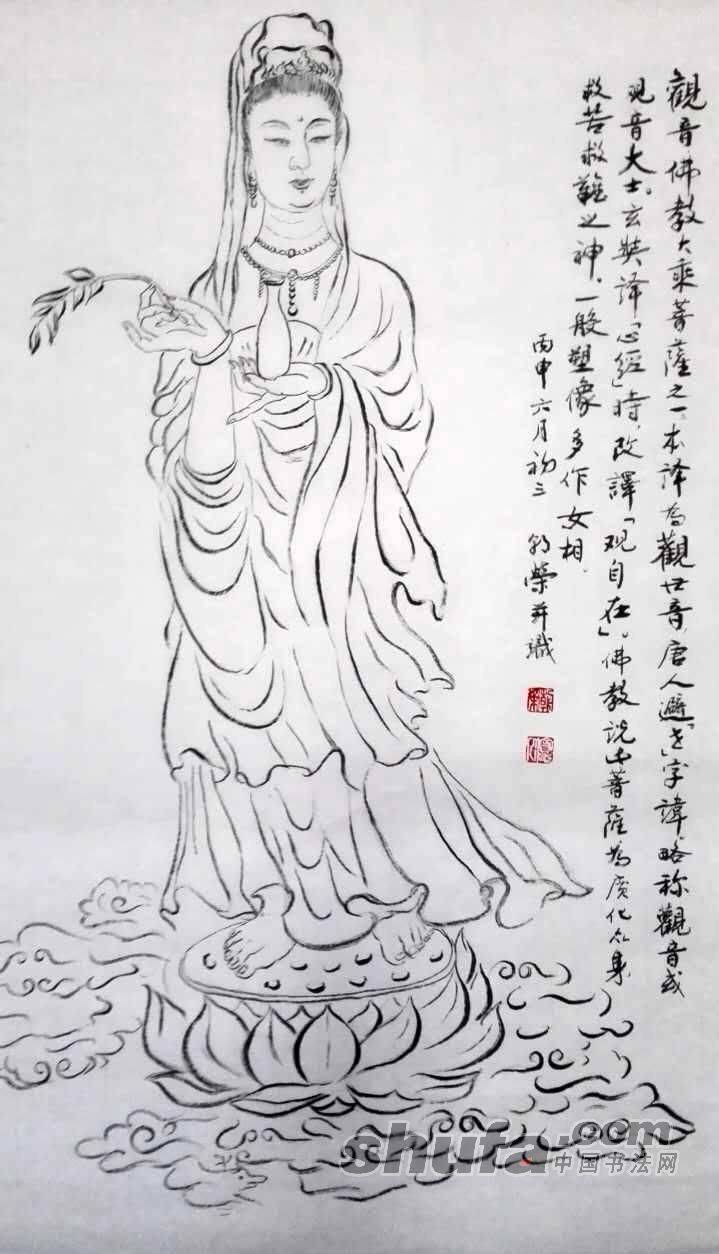 觀音佛教大乘菩薩之一.本译为觀世音,唐人避「世」字諱,略称觀音或
观音大士。玄奘译「心經」時,改譯「观自在」。佛教说此菩薩为广化众身
救苦救難之神.一般塑像多作女相.
丙申六月初三 榮并識
shufa.com
中国书法网